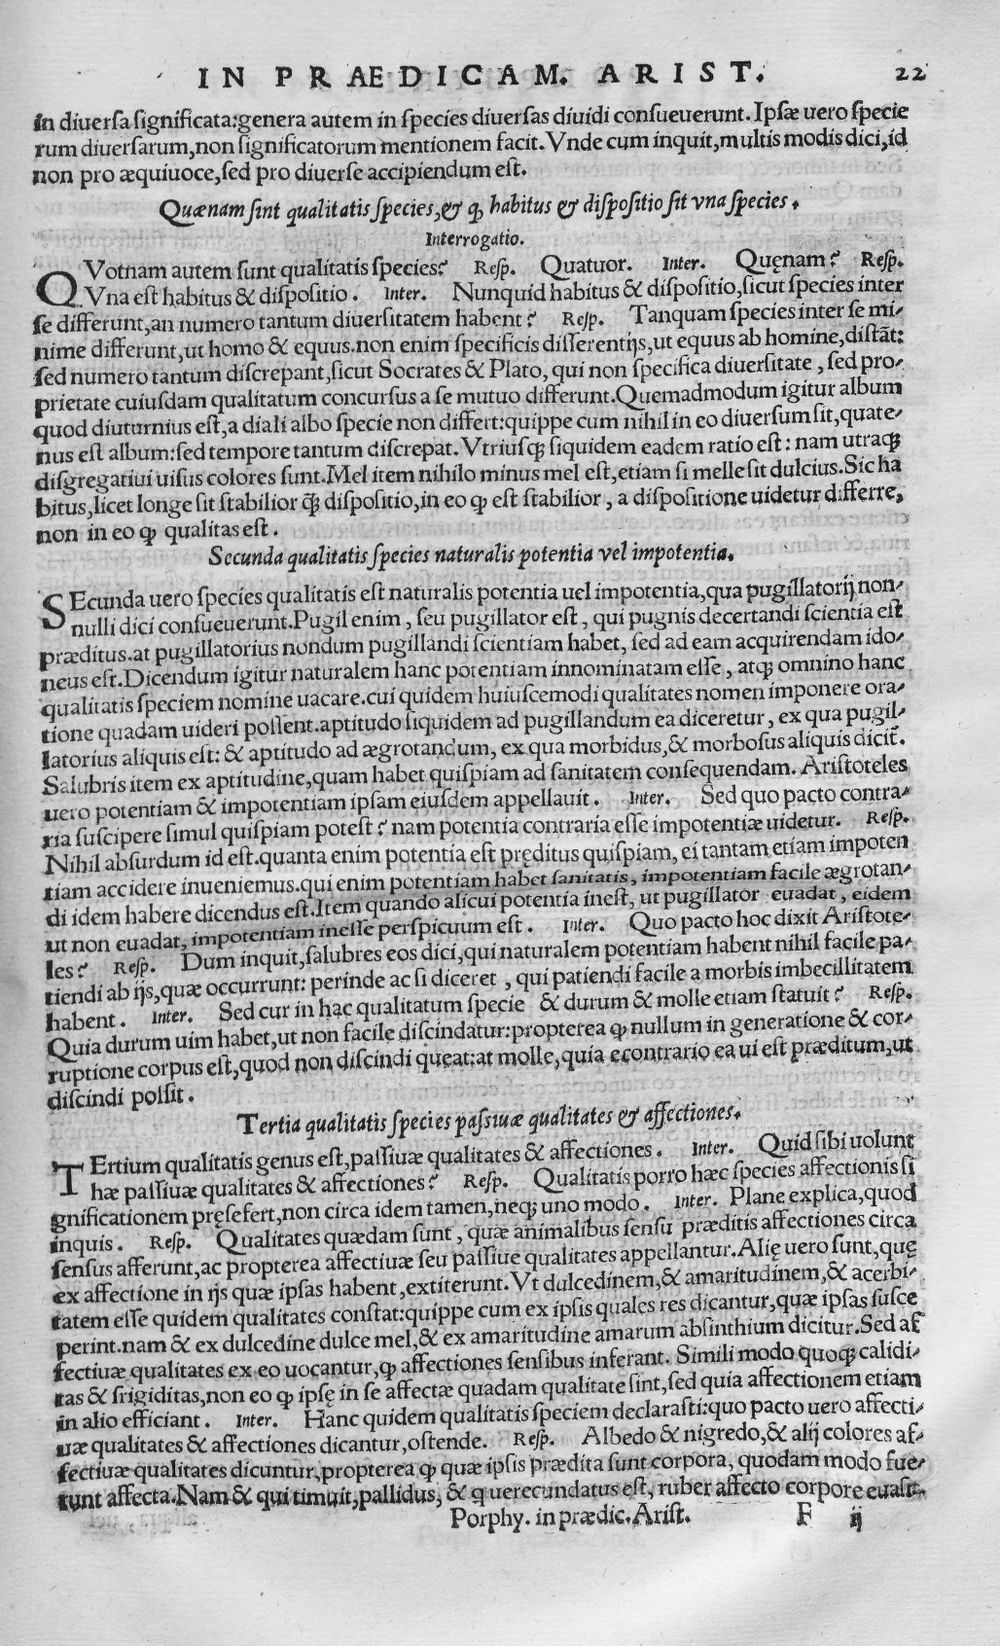 IN PRÆDICAM. ARIST. 22
in diuersa significata:genera autem in species diuersas diuidi consueuerunt. Ipsæ uero specie
rum diuersarum,non significatorum mentionem facit. Vnde cum inquit,multis modis dici,id
non pro æquiuoce,sed pro diuerse accipiendum est.
Quænam sint qualitatis species,& ꝙ habitus & dispositio sit vna species.
Interrogatio.
QVotnam autem sunt qualitatis species? Resp. Quatuor. Inter. Quęnam? Resp.
Vna est habitus & dispositio. Inter. Nunquid habitus & dispositio,sicut species inter
se differunt,an numero tantum diuersitatem habent? Resp. Tanquam species inter se mi-
nime differunt,ut homo & equus.non enim specificis differentijs,ut equus ab homine,distāt:
sed numero tantum discrepant,sicut Socrates & Plato, qui non specifica diuersitate, sed pro-
prietate cuiusdam qualitatum concursus a se mutuo differunt.Quemadmodum igitur album
quod diuturnius est,a diali albo specie non differt:quippe cum nihil in eo diuersum sit,quate-
nus est album:sed tempore tantum discrepat. Vtriusqꝫ siquidem eadem ratio est: nam utraqꝫ
disgregatiui uisus colores sunt.Mel item nihilo minus mel est,etiam si melle sit dulcius.Sic ha
bitus,licet longe sit stabilior ꝗ̃ dispositio,in eo ꝙ est stabilior, a dispositione uidetur differre,
non in eo ꝙ qualitas est.
Secunda qualitatis species naturalis potentia vel impotentia.
SEcunda uero species qualitatis est naturalis potentia uel impotentia,qua pugillatorij non-
nulli dici consueuerunt.Pugil enim, seu pugillator est, qui pugnis decertandi scientia est
præditus.at pugillatorius nondum pugillandi scientiam habet, sed ad eam acquirendam ido-
neus est.Dicendum igitur naturalem hanc potentiam innominatam esse, atqꝫ omnino hanc
qualitatis speciem nomine uacare.cui quidem huiuscemodi qualitates nomen imponere ora-
tione quadam uideri possent.aptitudo siquidem ad pugillandum ea diceretur, ex qua pugil-
latorius aliquis est: & aptitudo ad ægrotandum, ex qua morbidus,& morbosus aliquis dicit̃.
Salubris item ex aptitudine,quam habet quispiam ad sanitatem consequendam. Aristoteles
uero potentiam & impotentiam ipsam eiusdem appellauit. Inter. Sed quo pacto contra-
ria suscipere simul quispiam potest? nam potentia contraria esse impotentiæ uidetur. Resp.
Nihil absurdum id est.quanta enim potentia est pręditus quispiam, ei tantam etiam impoten
tiam accidere inueniemus.qui enim potentiam habet sanitatis, impotentiam facile ægrotan-
di idem habere dicendus est.Item quando alicui potentia inest, ut pugillator euadat, eidem
ut non euadat, impotentiam inesse perspicuum est. Inter. Quo pacto hoc dixit Aristote-
les? Resp. Dum inquit,salubres eos dici,qui naturalem potentiam habent nihil facile pa-
tiendi ab ijs,quæ occurrunt: perinde ac si diceret, qui patiendi facile a morbis imbecillitatem
habent. Inter. Sed cur in hac qualitatum specie & durum & molle etiam statuit? Resp.
Quia durum uim habet,ut non facile discindatur:propterea ꝙ nullum in generatione & cor-
ruptione corpus est,quod non discindi queat:at molle,quia econtrario ea ui est præditum,ut
discindi possit.
Tertia qualitatis species passiuæ qualitates & affectiones.
TErtium qualitatis genus est,passiuæ qualitates & affectiones. Inter. Quid sibi uolunt
hæ passiuæ qualitates & affectiones? Resp. Qualitatis porro hæc species affectionis si
gnificationem pręsefert,non circa idem tamen,neqꝫ uno modo. Inter. Plane explica,quod
inquis. Resp. Qualitates quædam sunt, quæ animalibus sensu præditis affectiones circa
sensus afferunt,ac propterea affectiuæ seu passiue qualitates appellantur.Alię uero sunt,quę
ex affectione in ijs quæ ipsas habent,extiterunt.Vt dulcedinem,& amaritudinem,& acerbi-
tatem esse quidem qualitates constat:quippe cum ex ipsis quales res dicantur,quæ ipsas susce
perint.nam & ex dulcedine dulce mel,& ex amaritudine amarum absinthium dicitur.Sed af
fectiuæ qualitates ex eo uocantur,ꝙ affectiones sensibus inferant. Simili modo quoqꝫ calidi-
tas & frigiditas,non eo ꝙ ipsę in se affectæ quadam qualitate sint,sed quia affectionem etiam
in alio efficiant. Inter. Hanc quidem qualitatis speciem declarasti:quo pacto uero affecti-
uæ qualitates & affectiones dicantur,ostende. Resp. Albedo & nigredo,& alij colores af-
fectiuæ qualitates dicuntur,propterea ꝙ quæ ipsis prædita sunt corpora, quodam modo fue-
runt affecta.Nam & qui timuit,pallidus, & q uerecundatus est, ruber affecto corpore euasit.
Porphy. in prædic. Arist. F ij